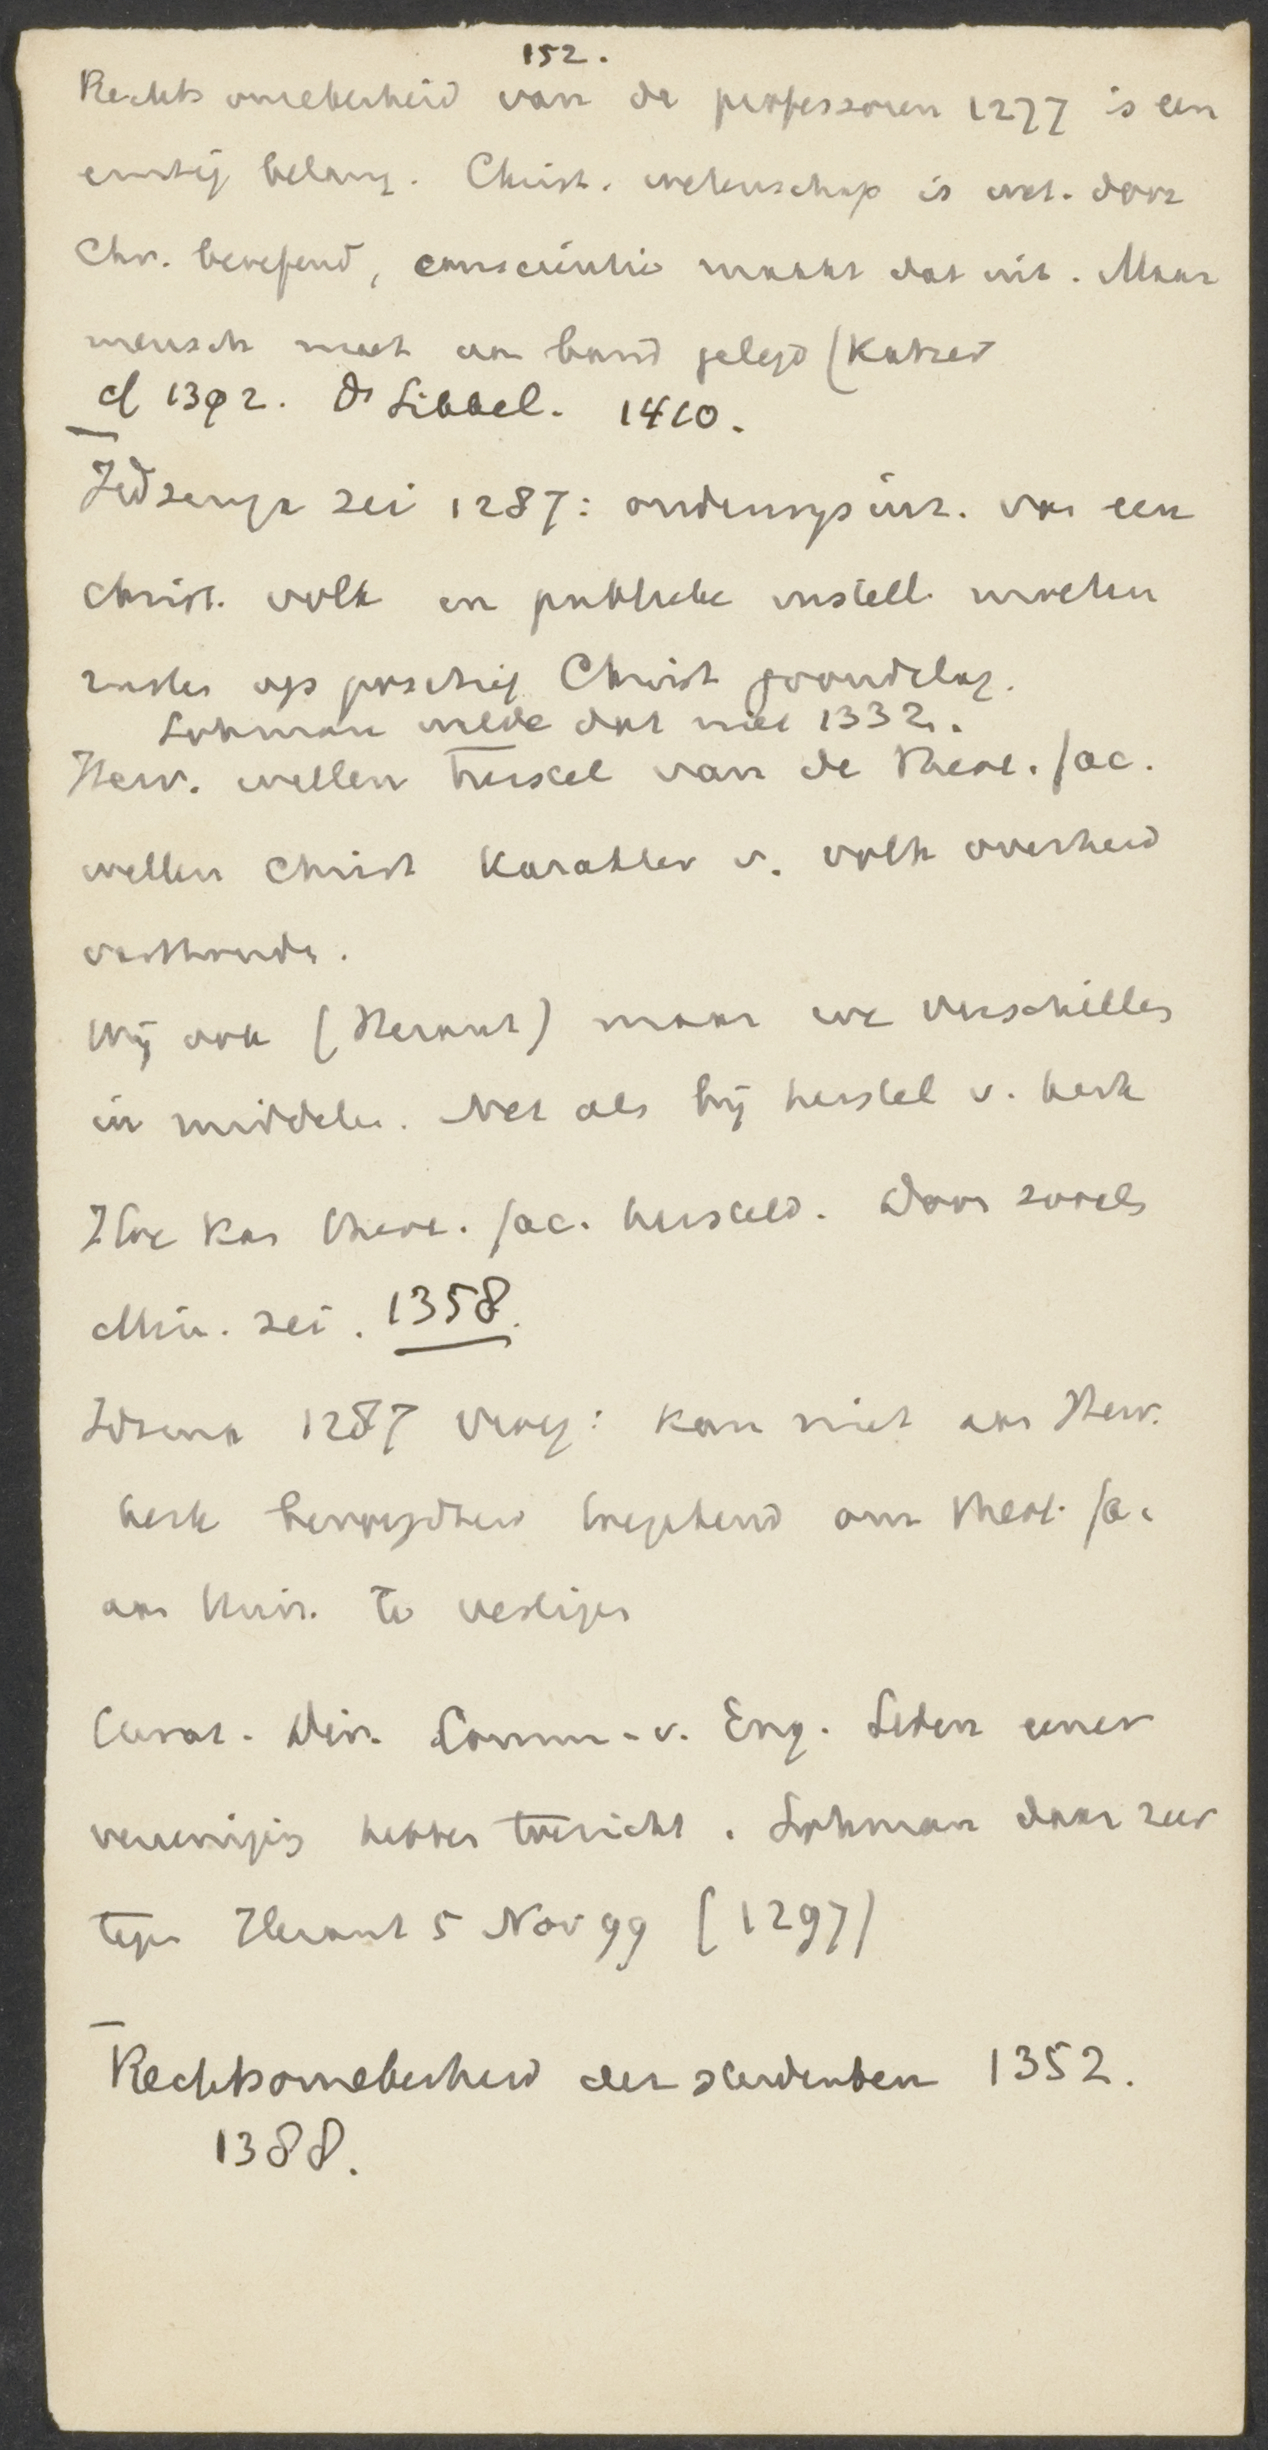 152.
Rechts onzekerheid van de professoren 1277 is een
ernstig belang. Christ. wetenschap is wet. door
Chr. beoefend, conscientie maakt dat uit. Maar
mensch moet aan band gelegd (Kuhzer
cf 1392. Ds Sikkel. 1410.
Idzenga zei 1287: onderwijsinr. van een
christ. volk en publieke instell. moeten
rusten op positief Christ grondslag.
Lohman wilde dat niet 1332.
Herv. willen herstel van de theol. fac.
willen Christ karakter v. volk overheid
vasthouden.
Wij ook (Heraut) maar we verschillen
in middelen. Net als bij herstel v. kerk
Hoe kan theol. fac. hersteld. Door zooals
Min. zei. 1358.
Idzenga 1287 vroeg: kan niet aan Herv.
kerk bevoegdheid toegekend om theol. fac
aan Univ. te vestigen
Curat. Dir. Comm. v. Enq. Leden eener
vereeniging hebben toezicht. Lohman daar zeer
tegen Heraut 5 Nov 99 (1297)
Rechtsonzekerheid der studenten 1352.
1388.